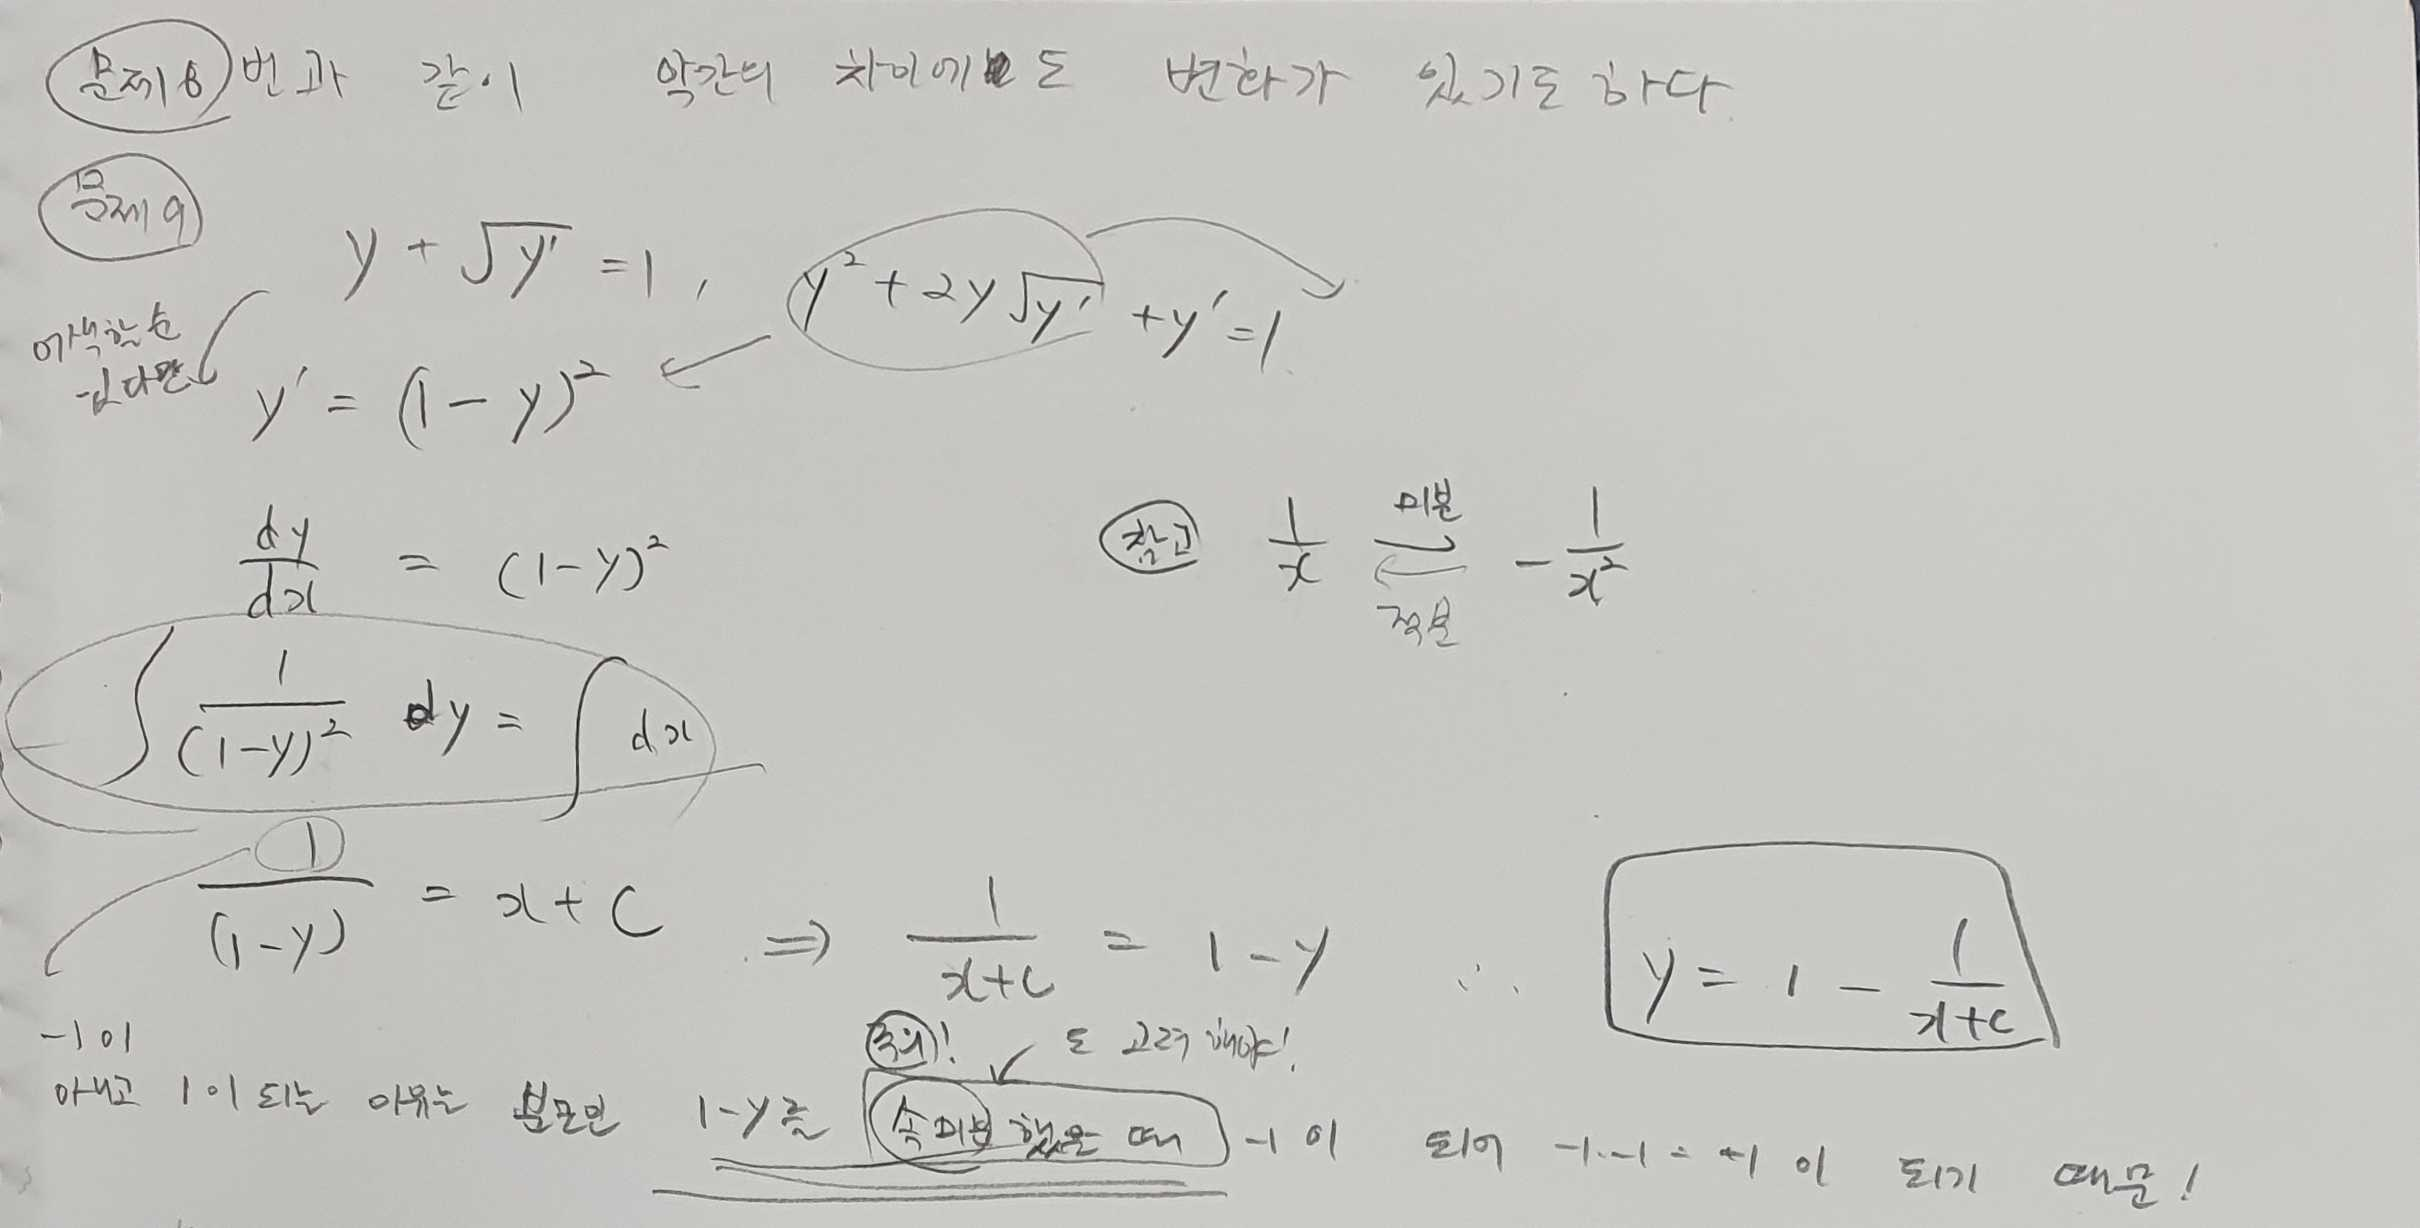 문제 8번과 같이 약간의 차이에도 변화가 있기도 하다.
문제 9
y + √y' = 1 , y² + 2y√y' + y' = 1.
할 수 있다면
y' = (1 - y)²
dy/dx = (1-y)²
참고 1/x 미분 ⇌ 적분 - 1/x²
∫ 1/(1-y)² dy = ∫ dx
1/(1-y) = x + C ⇒ 1/(x+c) = 1 - y ∴ y = 1 - 1/(x+c)
주의! 도 고려해야!
-1이
아니고 1이 되는 이유는 분모인 1-y를 속미분 했을 때 -1이 되어 -1·-1 = +1이 되기 때문!